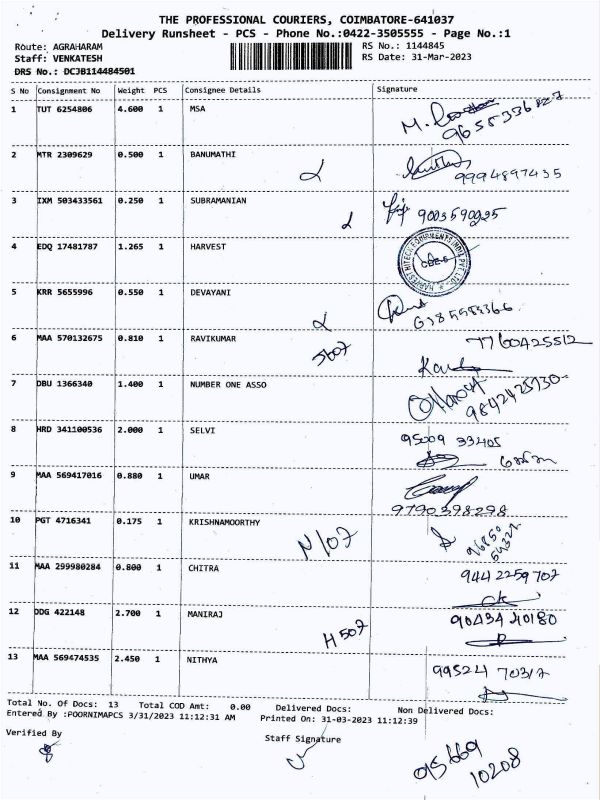 THE PROFESSIONAL COURIERS, COIMBATORE-641037
Delivery Runsheet - PCS - Phone No.:0422-3505555 - Page No.:1
Route: AGRAHARAM RS No.: 1144845
Staff: VENKATESH RS Date: 31-Mar-2023
DRS No.: DCJB114484501
S No Consignment No Weight PCS Consignee Details Signature
1 TUT 6254806 4.600 1 MSA
9655336827
2 MTR 2309629 0.500 1 BANUMATHI
9994897435
3 IXM 503433561 0.250 1 SUBRAMANIAN
9003590925
4 EDQ 17481787 1.265 1 HARVEST
HARVEST HITECH EQUIPMENTS INDIA PVT. LTD.
CBE-6
5 KRR 5655996 0.550 1 DEVAYANI
6 MAA 570132675 0.810 1 RAVIKUMAR 7760425512
7 DBU 1366340 1.400 1 NUMBER ONE ASSO
9842425730
8 HRD 341100536 2.000 1 SELVI
95009 33405
9 MAA 569417016 0.880 1 UMAR
9790398298
10 PGT 4716341 0.175 1 KRISHNAMOORTHY
N/07
11 MAA 299980284 0.800 1 CHITRA
9442259707
12 DDG 422148 2.700 1 MANIRAJ 90434 40180
H507
13 MAA 569474535 2.450 1 NITHYA
99524 70317
Total No. Of Docs: 13 Total COD Amt: 0.00 Delivered Docs: Non Delivered Docs:
Entered By :POORNIMAPCS 3/31/2023 11:12:31 AM Printed On: 31-03-2023 11:12:39
Verified By
Staff Signature
10208